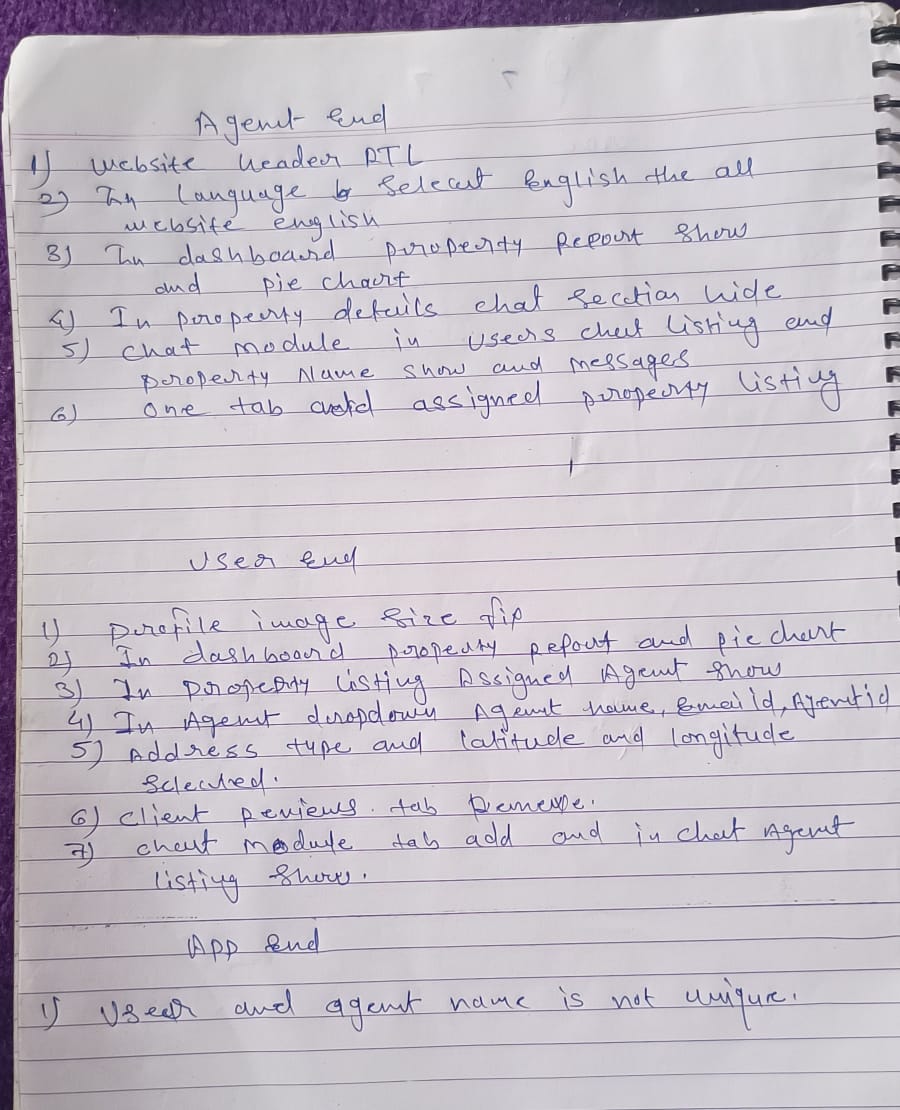 Agent End
1) Website Header RTL
2) In Language Select English the all
website english
3) In dashboard property Report show
and pie chart
4) In property details chat section hide
5) Chat module in users chat listing and
property Name show and messages
6) One tab add assigned property listing
User End
1) Profile image size fix
2) In dashboard property report and pie chart
3) In property listing Assigned Agent show
4) In Agent dropdown Agent name, Email id, Agent id
5) Address type and latitude and longitude
selected.
6) Client Reviews tab Remove.
7) Chat module tab add and in chat Agent
listing show.
App End
1) User and agent name is not unique.